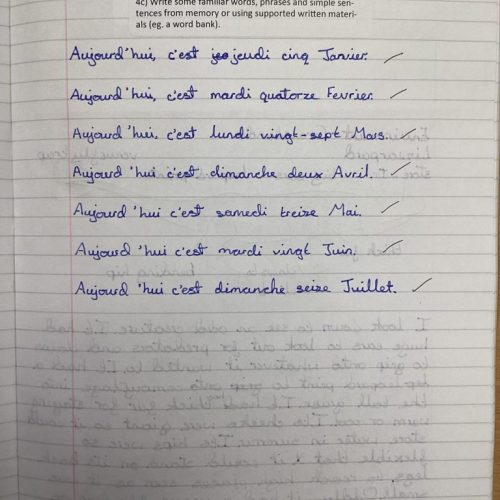 4c) Write some familiar words, phrases and simple sen-
tences from memory or using supported written materi-
als (eg. a word bank).
Aujourd'hui, c'est jeudi cinq Janvier.
Aujourd'hui, c'est mardi quatorze Fevrier.
Aujourd'hui, c'est lundi vingt-sept Mars.
Aujourd'hui c'est dimanche deux Avril.
Aujourd'hui c'est samedi treize Mai.
Aujourd'hui c'est mardi vingt Juin.
Aujourd'hui c'est dimanche seize Juillet.